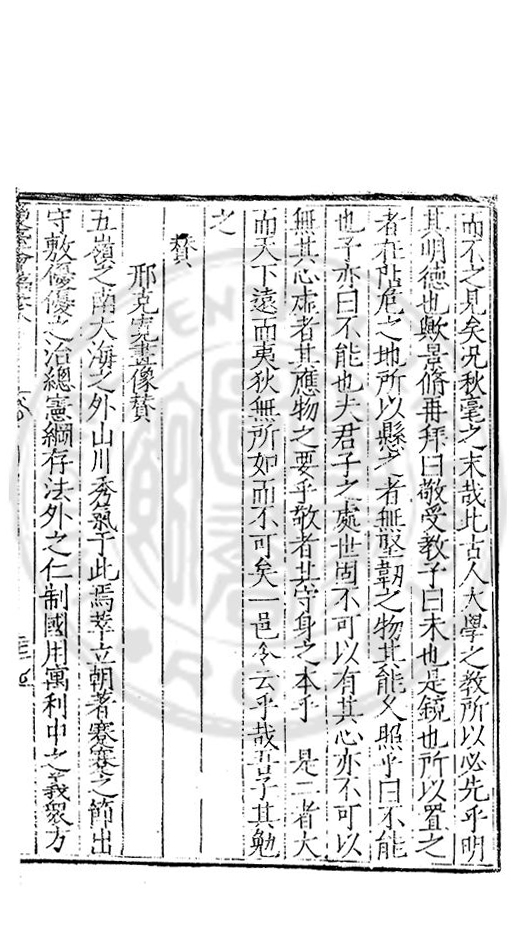 而不之見矣况秋毫之末哉此古人大學之教所以必先乎明
其明德也歟景脩再拜曰敬受教予曰未也是鏡也所以置之
者在阽危之地所以懸之者無堅韌之物其能久照乎曰不能
也予亦曰不能也夫君子之處世固不可以有其心亦不可以
無其心虛者其應物之要乎敬者其守身之本乎 是二者大
而天下遠而夷狄無所如而不可矣一邑令云乎哉吾子其勉
之
贊
邢克寬畫像贊
五嶺之南大海之外山川秀氣于此焉萃立朝著謇謇之節出
守敷優優之治總憲綱存法外之仁制國用寓利中之義衆方